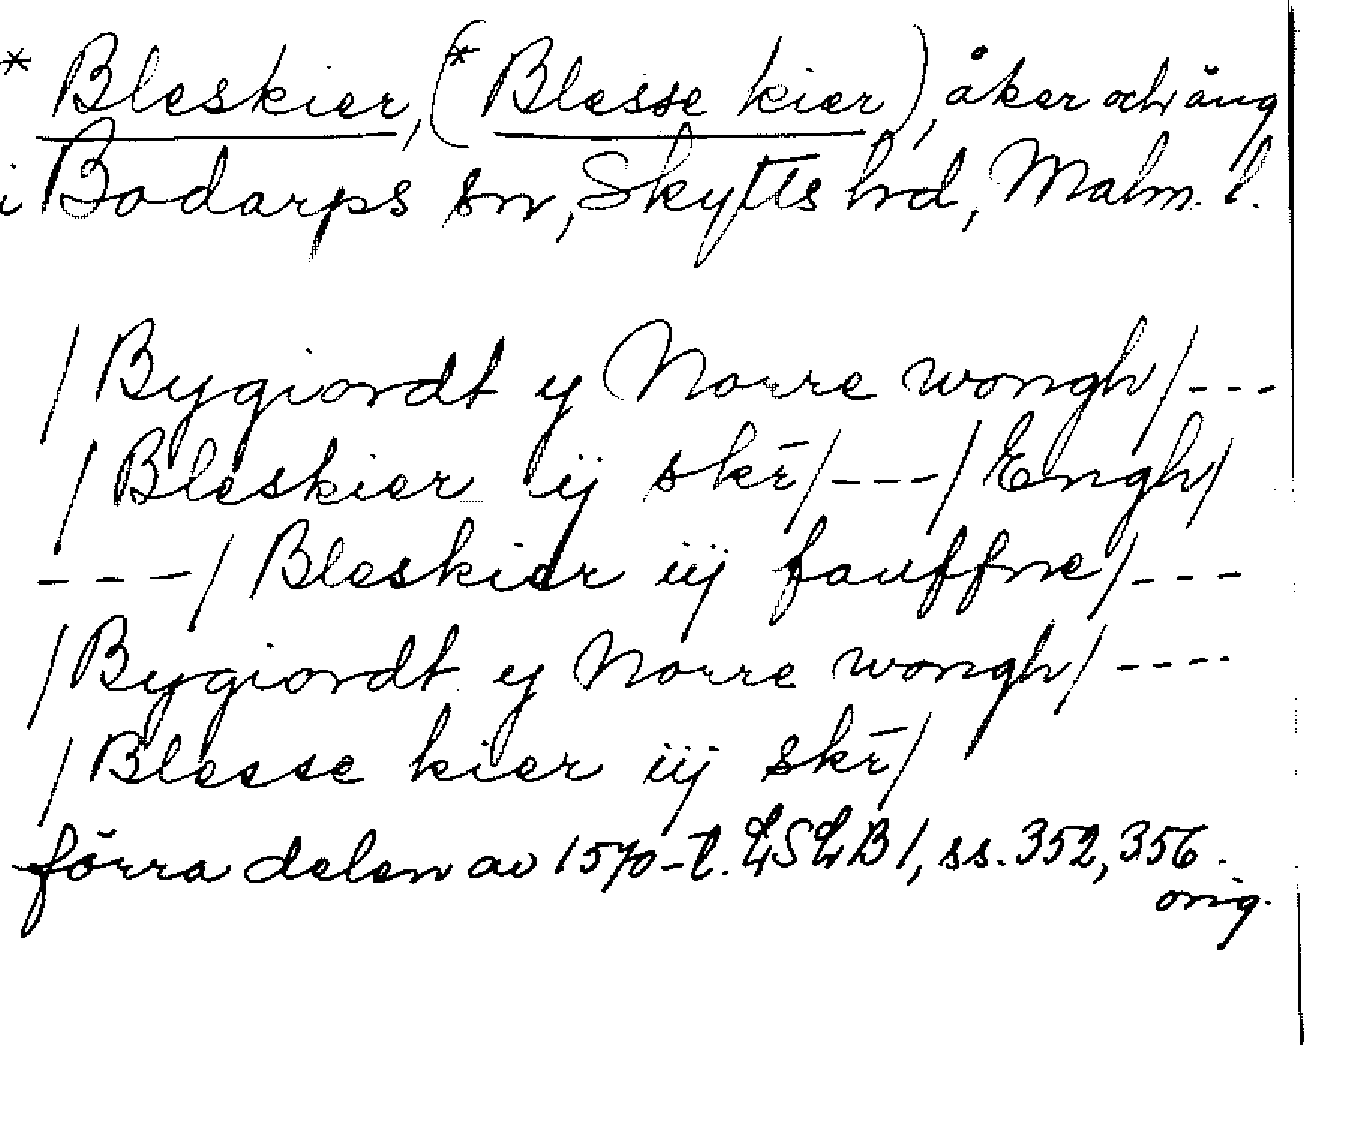 * Bleskier, (* Blesse kier), åker och äng
i Bodarps sn, Skytts hd, Malm. l.
/Bygiordt y Norre wongh/---
/Bleskier ij skr̄/---/Engh/
---/Bleskier iij fauffne/---
/Bygiordt y Norre wongh/----
/Blesse kier iij skr̄/
förra delen av 1570-t. LSLB 1, ss. 352, 356.
orig.